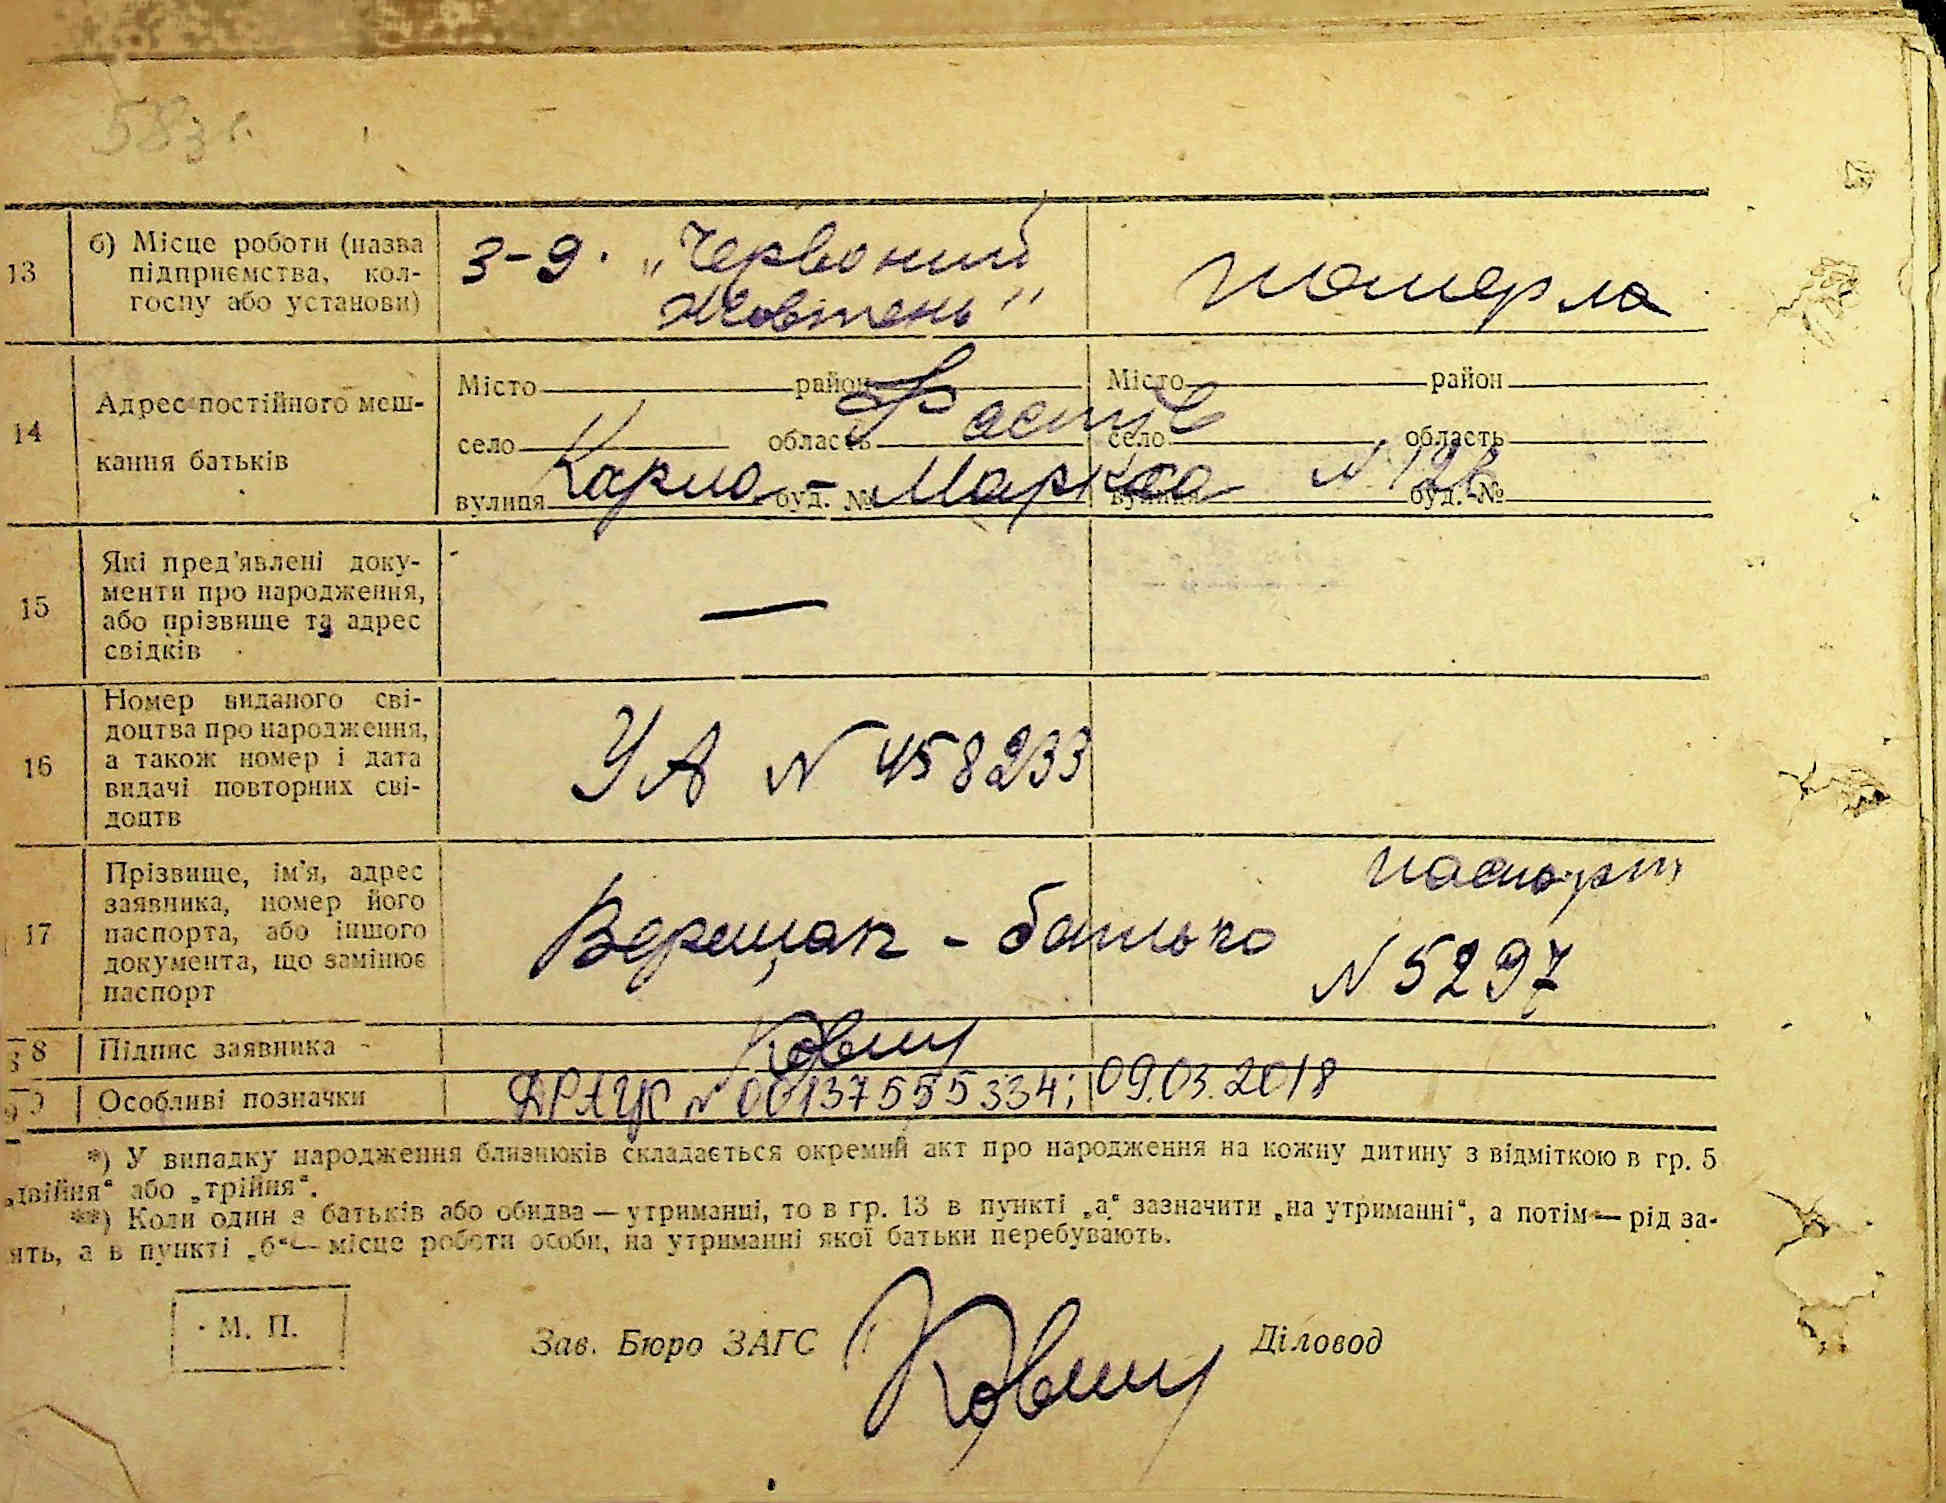 58 з г.
13 б) Місце роботи (назва підприємства, колгоспу або установи)
З-д. „Червоний
Жовтень"
померла
14 Адрес постійного мешкання батьків
Місто район Місто район
Фастів
село область село область
Карла-Маркса N 12в
вулиця буд. № вулиця буд. №
15 Які пред'явлені документи про народження, або прізвище та адрес свідків
—
16 Номер виданого свідоцтва про народження, а також номер і дата видачі повторних свідоцтв
УА N 458233
17 Прізвище, ім'я, адрес заявника, номер його паспорта, або іншого документа, що замінює паспорт
Верещак - батько
паспорт
N 5297
8 Підпис заявника
Особливі позначки
ДРАЦС N 00137555334; 09.03.2018
*) У випадку народження близнюків складається окремий акт про народження на кожну дитину з відміткою в гр. 5
„двійня" або „трійня".
**) Коли один з батьків або обидва — утриманці, то в гр. 13 в пункті „а" зазначити „на утриманні", а потім — рід за-
ять, а в пункті „б" — місце роботи особи, на утриманні якої батьки перебувають.
М. П.
Зав. Бюро ЗАГС
Діловод